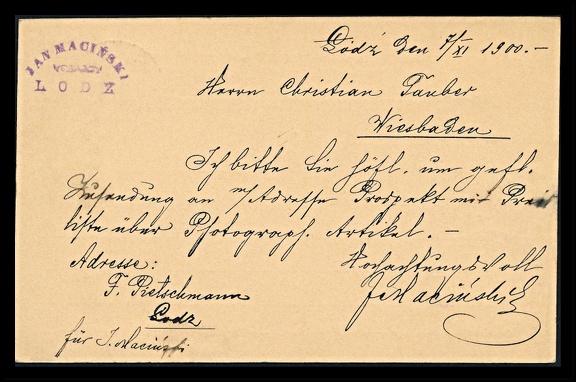 JAN MACIŃSKI
LODZ
Lódź den 7/XI 1900.-
Herrn Christian Tauber
Wiesbaden
Ich bitte Sie höfl. um gefl.
Zusendung an m/Adresse Prospekt mit Preis
liste über Photograph. Artikel. -
Adresse:
Hochachtungsvoll
F. Pietschmann
J Maciński
Lodz
für J. Maciński